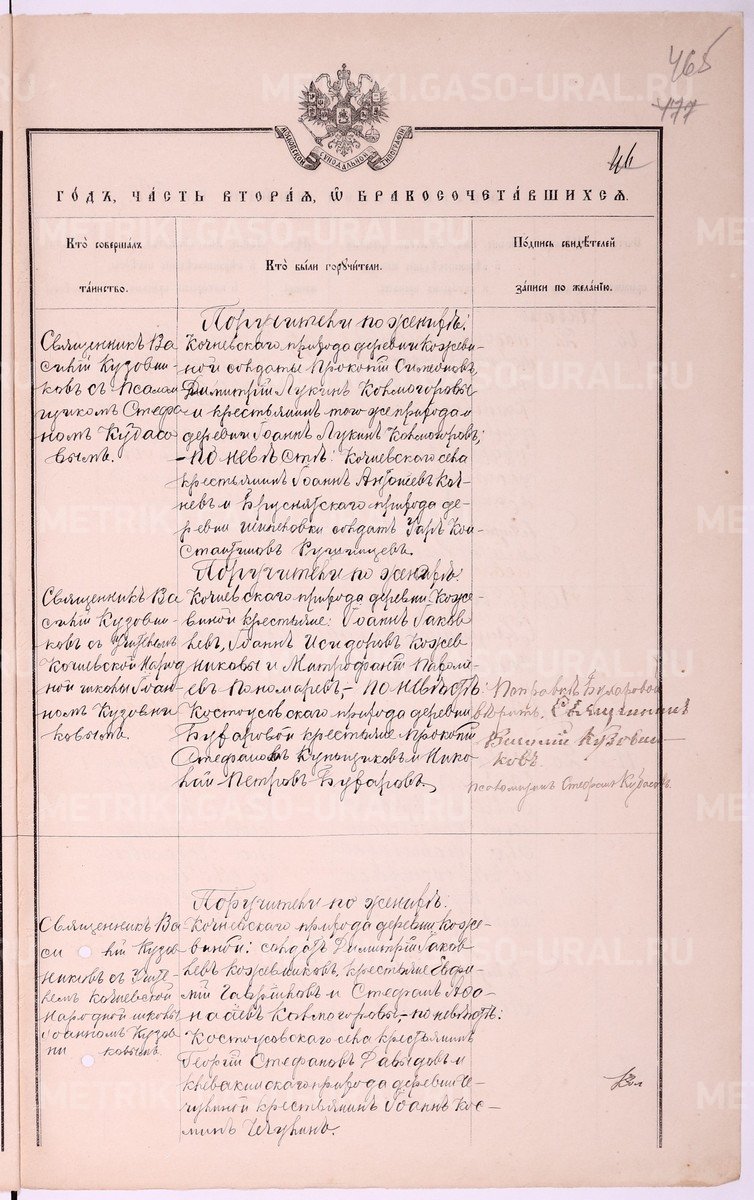 465
177
46
МОСКОВСКОЙ СѴНОДАЛЬНОЙ ТИПОГРАФІИ
ГОДЪ, ЧАСТЬ ВТОРАЯ, Ѡ БРАКОСОЧЕТАВШИХСЯ.
Кто совершалъ таинство.
Кто были поручители.
Подпись свидѣтелей записи по желанію.
Священникъ Ва
силій Кузовни
ковъ съ Псалом
щикомъ Стефа
номъ Кудасо
вымъ.
Поручители по женихѣ:
Кочневскаго прихода деревни Кожеви
ной солдаты Прокопій Симеоновъ,
Димитрій Лукинъ Колмогоровы
и крестьянинъ того же прихода и
деревни Іоаннъ Лукинъ Колмогоровъ;
– по невѣстѣ: Кочневскаго села
крестьянинъ Іоаннъ Коч
невъ и Бруснятскаго прихода де
ревни солдатъ Кон
стантиновъ
Священникъ Ва
силій Кузовни
ковъ съ Учителемъ
Кочневской Народ
ной школы Іоан
номъ Кузовни
ковымъ.
Поручители по женихѣ:
Кочневскаго прихода деревни Коже
виной крестьяне: Іоаннъ Іаков
левъ, Іоаннъ Исидоровъ Кожев
никовы и Митрофанъ
Пономаревъ, – по невѣстѣ:
Костоусовскаго прихода деревни
Буфаровой крестьяне Прокопій
Стефановъ и Нико
лай Петровъ Буфаровъ.
Поправкѣ Буфаровой
вѣрить. Священникъ
Василій Кузовни
ковъ
псаломщикъ Стефанъ Кудасовъ.
Священникъ Ва
силій Кузов
никовъ съ Учите
лемъ Кочневской
Народной школы
Іоанномъ Кузов
никовымъ.
Поручители по женихѣ:
Кочневскаго прихода деревни Коже
виной: солдатъ Димитрій Іаков
левъ Кожевниковъ, крестьяне Ефи
мій Гавриловъ и Стефанъ Афо
насьевъ Колмогоровы – по невѣстѣ:
Костоусовскаго села крестьянинъ
Георгій Стефановъ Давыдовъ и
Клевакинскаго прихода деревни Че
чулиной крестьянинъ Іоаннъ Кос
минъ Чечулинъ.
METRIKI.GASO-URAL.RU